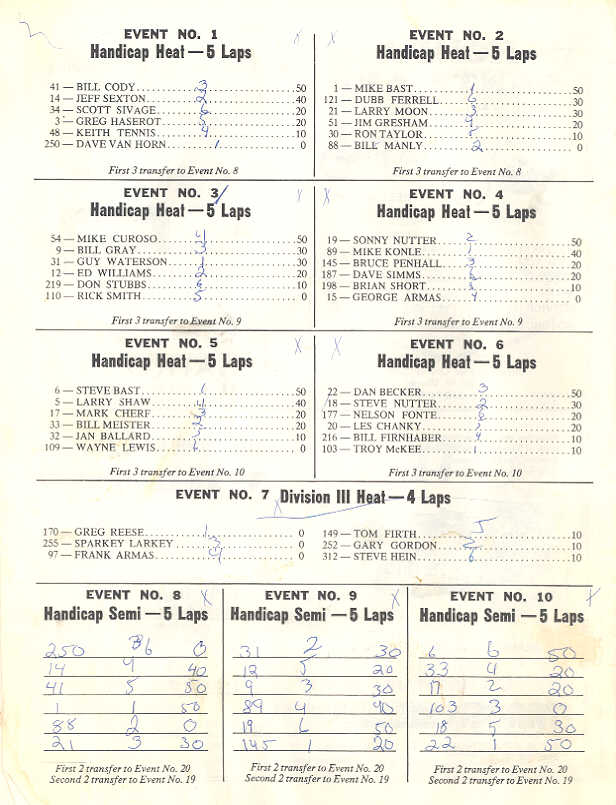 EVENT NO. 1
Handicap Heat — 5 Laps
41 — BILL CODY 3 50
14 — JEFF SEXTON 2 40
34 — SCOTT SIVAGE 6 20
3 — GREG HASEROT 5 20
48 — KEITH TENNIS 4 10
250 — DAVE VAN HORN 1 0
First 3 transfer to Event No. 8
EVENT NO. 2
Handicap Heat — 5 Laps
1 — MIKE BAST 1 50
121 — DUBB FERRELL 6 30
21 — LARRY MOON 3 30
51 — JIM GRESHAM 4 20
30 — RON TAYLOR 5 10
88 — BILL MANLY 2 0
First 3 transfer to Event No. 8
EVENT NO. 3
Handicap Heat — 5 Laps
54 — MIKE CUROSO 4 50
9 — BILL GRAY 3 30
31 — GUY WATERSON 1 30
12 — ED WILLIAMS 2 20
219 — DON STUBBS 6 10
110 — RICK SMITH 5 0
First 3 transfer to Event No. 9
EVENT NO. 4
Handicap Heat — 5 Laps
19 — SONNY NUTTER 2 50
89 — MIKE KONLE 1 40
145 — BRUCE PENHALL 3 20
187 — DAVE SIMMS 20
198 — BRIAN SHORT 10
15 — GEORGE ARMAS 4 0
First 3 transfer to Event No. 9
EVENT NO. 5
Handicap Heat — 5 Laps
6 — STEVE BAST 1 50
5 — LARRY SHAW 4 40
17 — MARK CHERF 3 20
33 — BILL MEISTER 20
32 — JAN BALLARD 10
109 — WAYNE LEWIS 0
First 3 transfer to Event No. 10
EVENT NO. 6
Handicap Heat — 5 Laps
22 — DAN BECKER 3 50
18 — STEVE NUTTER 2 30
177 — NELSON FONTE 20
20 — LES CHANKY 20
216 — BILL FIRNHABER 4 10
103 — TROY McKEE 1 10
First 3 transfer to Event No. 10
EVENT NO. 7 Division III Heat — 4 Laps
170 — GREG REESE 1 0
255 — SPARKEY LARKEY 3 0
97 — FRANK ARMAS 4 0
149 — TOM FIRTH 5 10
252 — GARY GORDON 2 10
312 — STEVE HEIN 6 10
EVENT NO. 8
Handicap Semi — 5 Laps
250 6 0
14 4 40
41 5 50
1 1 50
88 2 0
21 3 30
First 2 transfer to Event No. 20
Second 2 transfer to Event No. 19
EVENT NO. 9
Handicap Semi — 5 Laps
31 2 30
12 5 20
9 3 30
89 4 40
19 6 50
145 1 20
First 2 transfer to Event No. 20
Second 2 transfer to Event No. 19
EVENT NO. 10
Handicap Semi — 5 Laps
6 6 50
33 4 20
17 2 20
103 3 0
18 5 30
22 1 50
First 2 transfer to Event No. 20
Second 2 transfer to Event No. 19